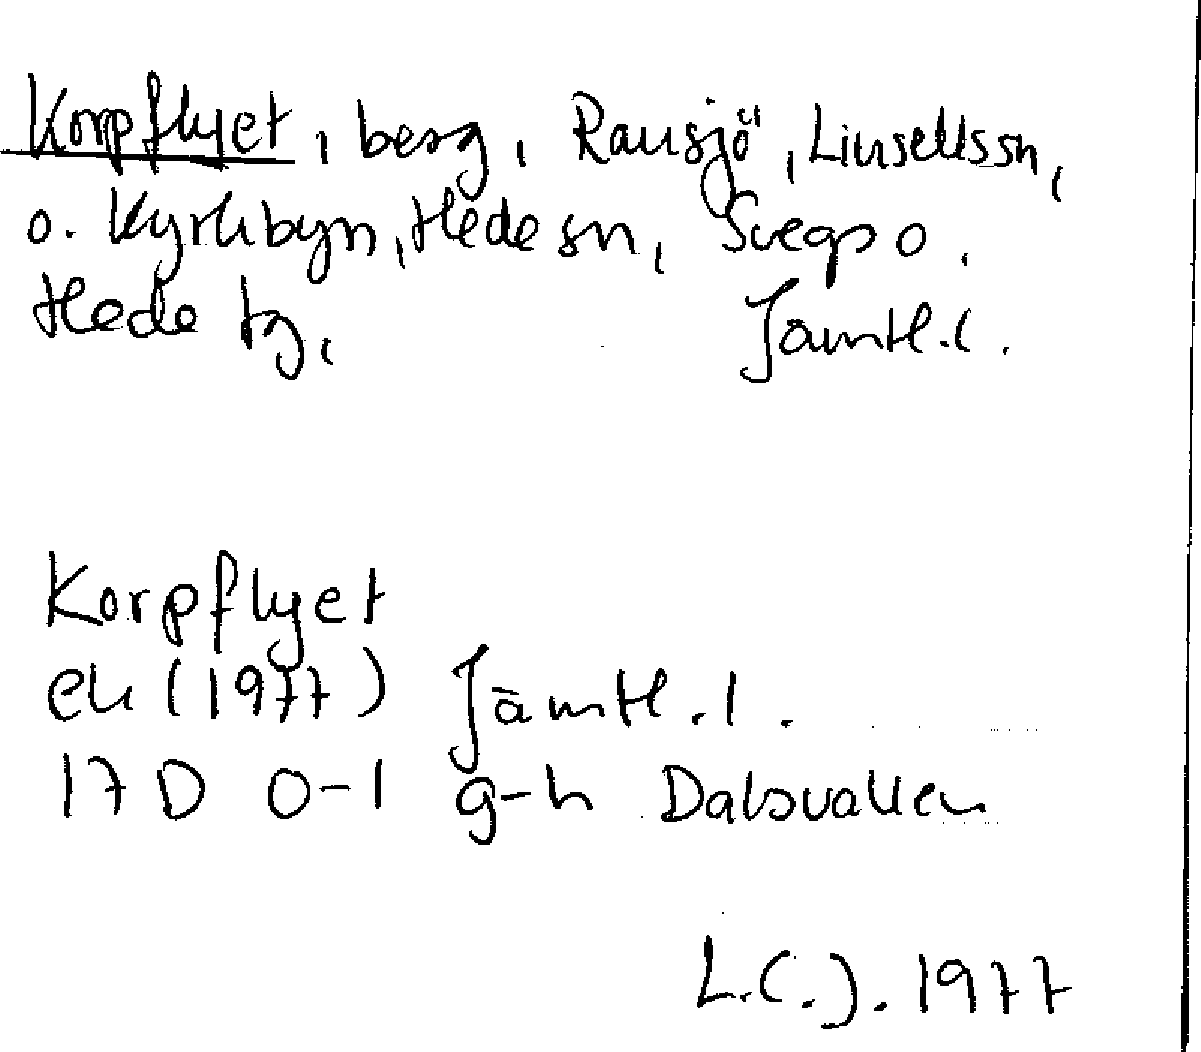 Korpflyet, berg, Ransjö, Linsellssn,
o. Kyrkbyn, Hede sn, Svegs o.
Hede tg, Jämtl. l.
Korpflyet
ek (1977) Jämtl. l.
17 D 0-1 g-h Dalsvallen
L.C.J. 1977